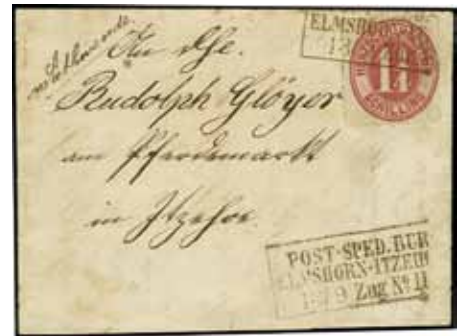 ELMSHO
13
1¼
SCHILLING
An
Rudolph Glöyer
am Pferdemarkt
in Itzehoe.
POST-SPED.BUR
ELMSHORN-ITZEH
9 Zug No II